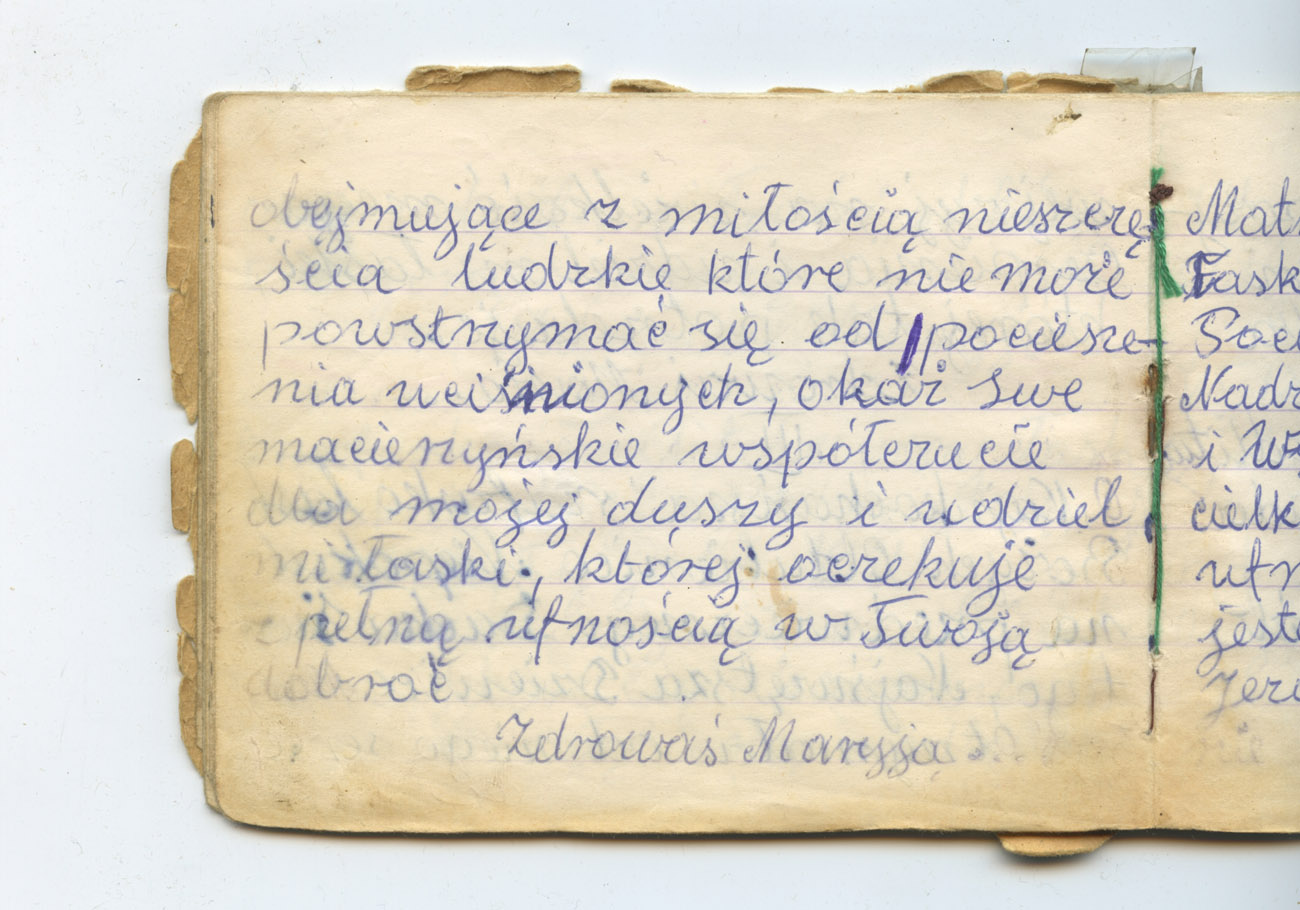 obejmujące z miłością nieszczę-
ścia ludzkie które nie może
powstrzymać się od pociesze-
nia uciśnionych, okaż swe
macierzyńskie współczucie
dla mojej duszy i udziel
mi łaski, której oczekuje
z pełną ufnością w Twoją
dobroć
Zdrowaś Maryja
Mat
Łask
Poci
Nadz
i W
cielk
ufn
jeste
Jezu